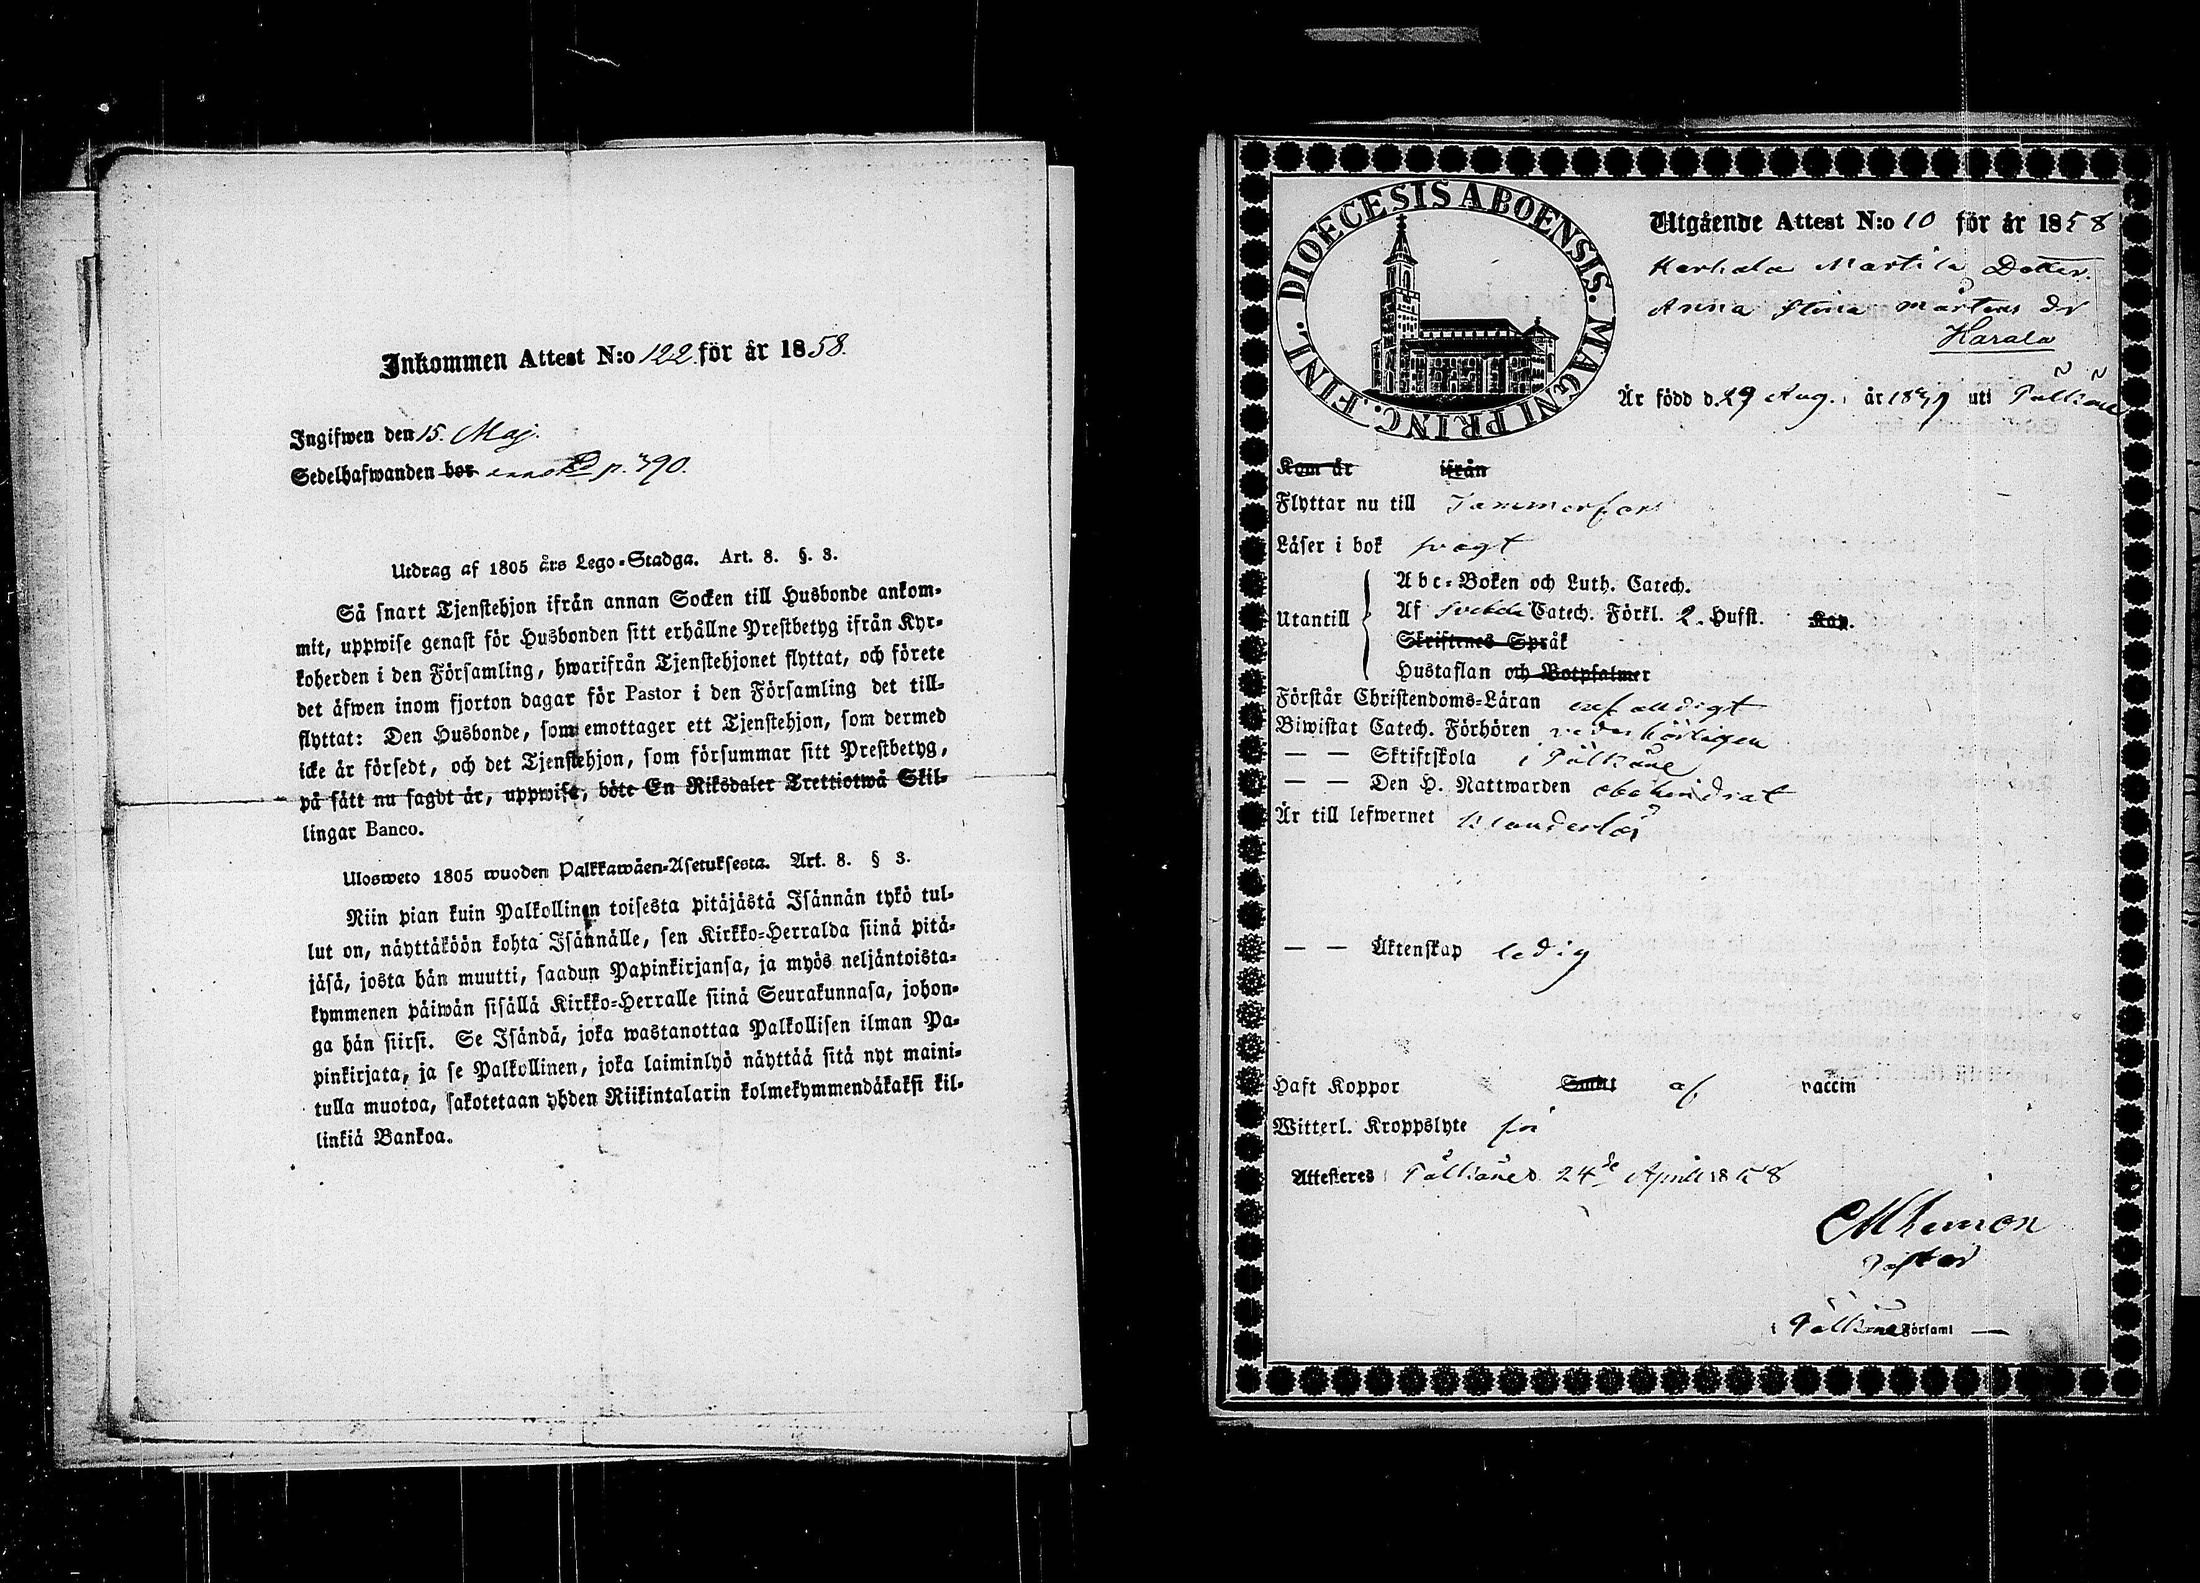 Inkommen Attest N:o 122. för år 1858.
Ingifwen den 15. Maj.
Sedelhafwanden bor p. 390.
Utdrag af 1805 års Lego-Stadga. Art. 8. §. 3.
Så snart Tjenstehjon ifrån annan Socken till Husbonde ankom-
mit, uppwise genast för Husbonden sitt erhållne Prestbetyg ifrån Kyr-
koherden i den Församling, hwarifrån Tjenstehjonet flyttat, och förete
det äfwen inom fjorton dagar för Pastor i den Församling det till-
flyttat: Den Husbonde, som emottager ett Tjenstehjon, som dermed
icke är försedt, och det Tjenstehjon, som försummar sitt Prestbetyg,
på sätt nu sagdt är, uppwisa, böte En Riksdaler Trettiotwå Skil-
lingar Banco.
Ulosweto 1805 wuoden Palkkawäen-Asetuksesta. Art. 8. § 3.
Niin pian kuin Palkollinen toisesta pitäjästä Isännän tykö tul-
lut on, näyttäköön kohta Isännälle, sen Kirkko-Herralda siinä pitä-
jäsä, josta hän muutti, saadun Papinkirjansa, ja myös neljäntoista-
kymmenen päiwän sisällä Kirkko-Herralle siinä Seurakunnasa, johon-
ga hän siirsi. Se Isändä, joka wastanottaa Palkollisen ilman Pa-
pinkirjata, ja se Palkollinen, joka laiminlyö näyttää sitä nyt maini-
tulla muotoa, sakotetaan yhden Riikintalarin kolmekymmendäkaksi kil-
linkiä Bankoa.
FINL. DIOECESIS ABOENSIS. MAGNI PRINC.
Utgående Attest N:o 10 för år 1858
Martila Dotter.
Anna Stina Mårtens dr
Harala
Är född d. 29 Aug. år 18 uti Pälkäne
Kom år ifrån
Flyttar nu till Tammerfors
Läser i bok svagt
Abc-Boken och Luth. Catech.
Utantill Af Svebeli Catech. Förkl. 2. Hufst. Kap.
Skriftenes Språk
Hustaflan och Botpsalmer
Förstår Christendoms-Läran enfaldigt
Biwistat Catech. Förhören vederbörligen
— — Skriftskola i Pälkäne
— — Den H. Nattwarden obehindrat
Är till lefwernet klanderlös
— — Äktenskap ledig
Haft Koppor Smitt af vaccin
Witterl. Kroppslyte fri
Attesteres Pälkäne d. 24de April 1858
Pastor
i Pälkäne Församl —